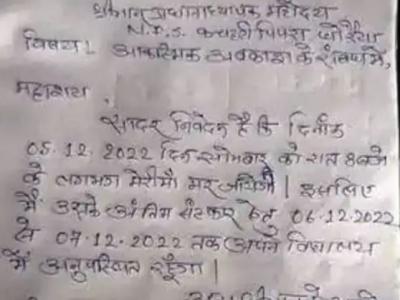 श्रीमान प्रधानाध्यापक महोदय
N.P.S. कचहरी पिपरा
विषय:- आकस्मिक अवकाश के संबंध में,
महाशय,
सादर निवेदन है कि दिनांक
05.12.2022 दिन सोमवार को रात 8 बजे
के लगभग मेरी माँ मर जायेगी। इसलिए
मैं उसके अंतिम संस्कार हेतु 06.12.2022
से 07.12.2022 तक अपने विद्यालय
में अनुपस्थित रहूँगा।